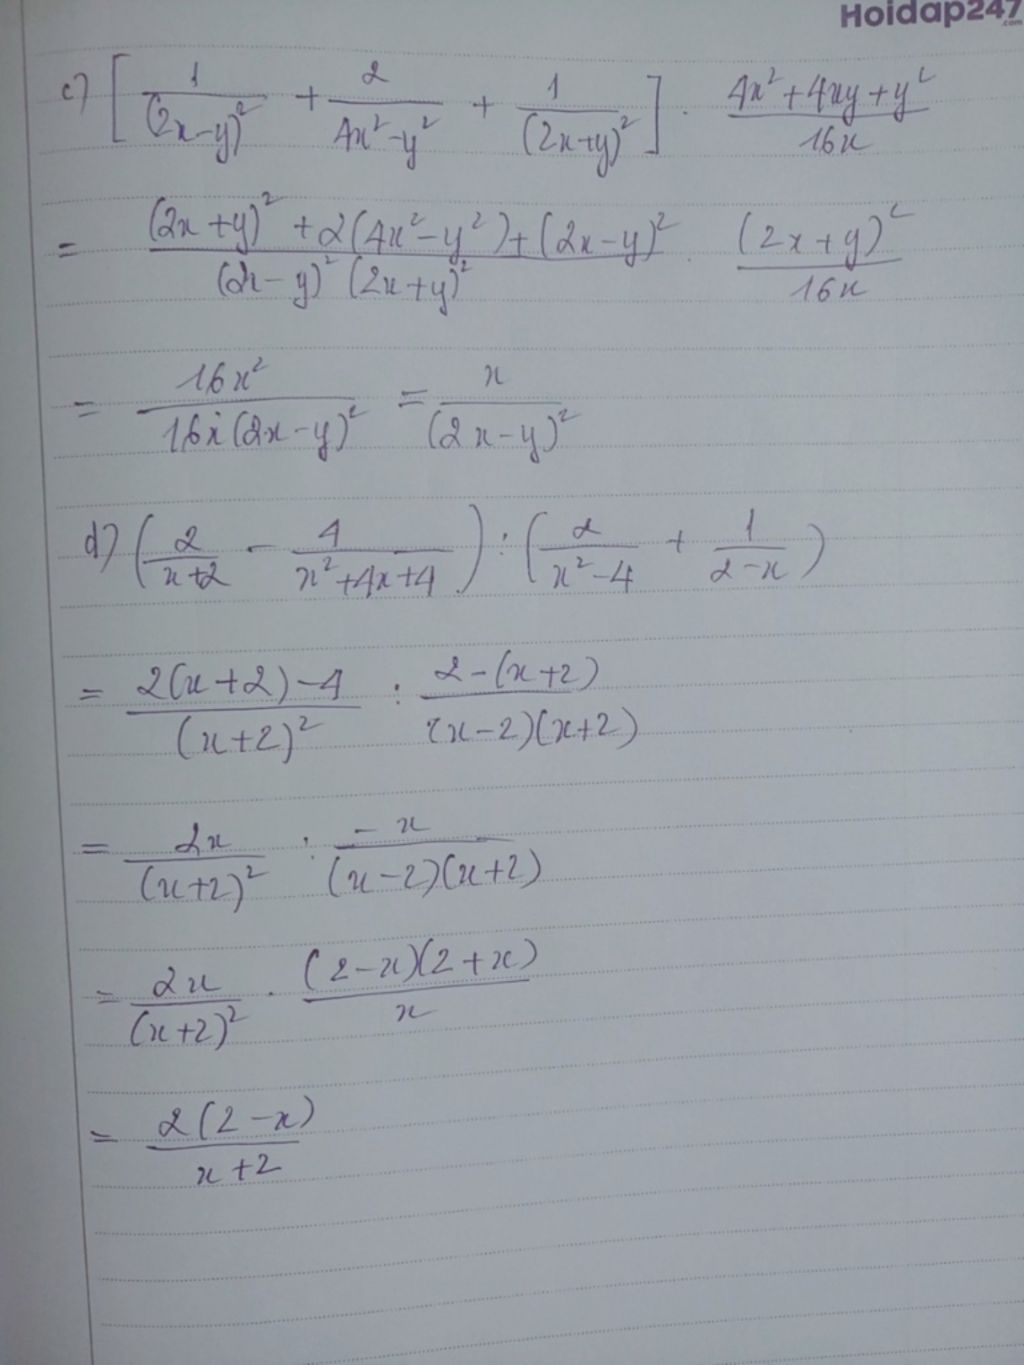 Hoidap247.com
c) [1/(2x-y)² + 2/(4x²-y²) + 1/(2x+y)²] . (4x²+4xy+y²)/16x
= ((2x+y)²+2(4x²-y²)+(2x-y)²)/((2x-y)²(2x+y)²) . (2x+y)²/16x
= 16x²/(16x(2x-y)²) = x/(2x-y)²
d) (2/(x+2) - 4/(x²+4x+4)) : (2/(x²-4) + 1/(2-x))
= (2(x+2)-4)/(x+2)² : (2-(x+2))/((x-2)(x+2))
= 2x/(x+2)² : -x/((x-2)(x+2))
= 2x/(x+2)² . ((2-x)(2+x))/x
= 2(2-x)/(x+2)